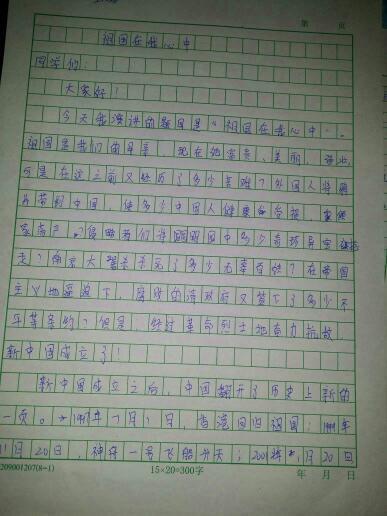 第 页
祖国在我心中
同学们:
大家好!
今天我演讲的题目是“祖国在我心中”。
祖国是我们的母亲,现在她富贵、美丽、
可是在这之前又经历了多少苦难?外国人将鸦
片带到中国,使多少中国人健康
家 产。?侵略者们将圆明园中多少奇珍异宝
走?南京大 杀 死了多少无辜百姓?在帝国
主义地 下,腐败的清政府又签下了多少不
平等条约?但是,经过革命烈士地奋力抗敌,
新中国成立了!
新中国成立之后,中国翻开了历史上新的
一页。1997年7月1日,香港回归祖国;1999年
11月20日,神舟一号飞船升天;2001年 月20日
209001207(8-1) 15×20=300字 年 月 日